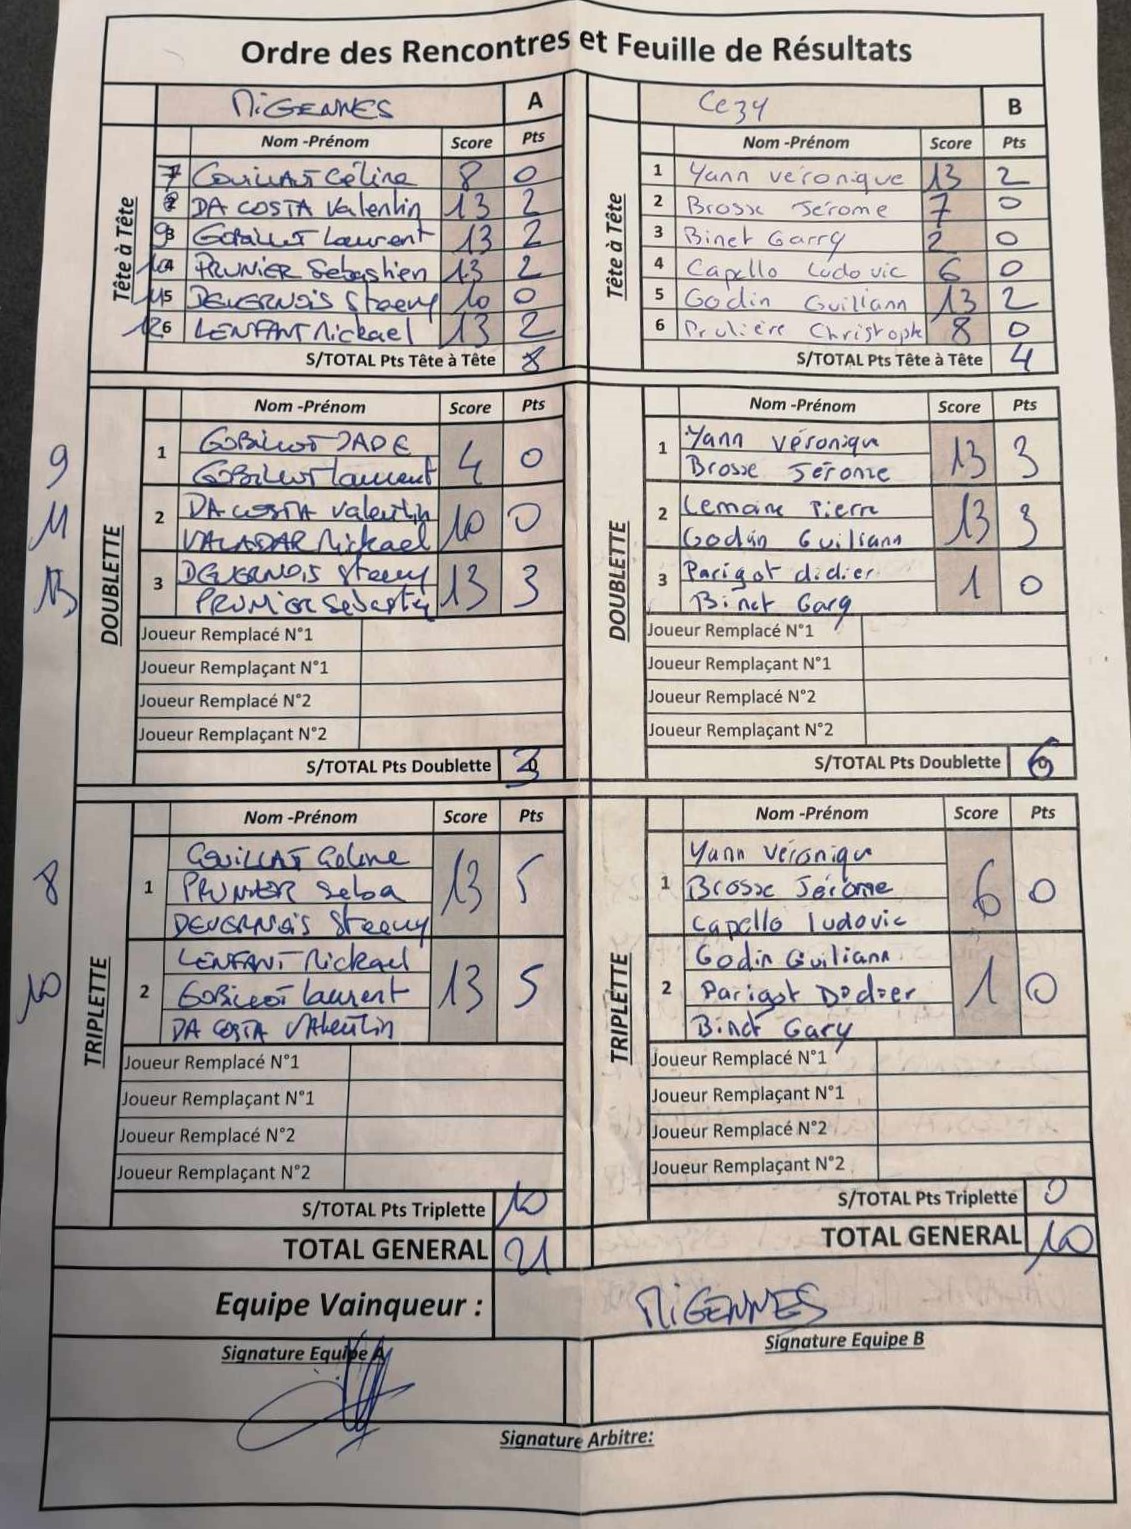 Ordre des Rencontres et Feuille de Résultats
MIGENNES A
Nom -Prénom Score Pts
Tête à Tête
7 COUILLAT Céline 8 0
DA COSTA Valentin 13 2
9 3 GOBILLOT Laurent 13 2
10 4 PRUNIER Sebastien 13 2
11 5 DEVERNOIS Steeny 10 0
12 6 LENFANT Mickael 13 2
S/TOTAL Pts Tête à Tête 8
Cezy B
Nom -Prénom Score Pts
Tête à Tête
1 Yann véronique 13 2
2 Brosse Jérome 7 0
3 Binet Garry 2 0
4 Capello Ludovic 6 0
5 Godin Guiliann 13 2
6 Prulière Christoph 8 0
S/TOTAL Pts Tête à Tête 4
DOUBLETTE
Nom -Prénom Score Pts
9 1 GOBILLOT JADE 4 0
GOBILLOT Laurent
11 2 DA COSTA Valentin 10 0
VALADAR Mickael
13 3 DEVERNOIS Steeny 13 3
PRUNIER Sebastien
Joueur Remplacé N°1
Joueur Remplaçant N°1
Joueur Remplacé N°2
Joueur Remplaçant N°2
S/TOTAL Pts Doublette 3
DOUBLETTE
Nom -Prénom Score Pts
1 Yann Véroniqu 13 3
Brosse Jérome
2 Lemaire Pierre 13 3
Godin Guiliann
3 Parigot didier 1 0
Binet Gary
Joueur Remplacé N°1
Joueur Remplaçant N°1
Joueur Remplacé N°2
Joueur Remplaçant N°2
S/TOTAL Pts Doublette 6
TRIPLETTE
Nom -Prénom Score Pts
8 1 COUILLAT Celine 13 5
PRUNIER Seba
DEVERNOIS Steeny
10 2 LENFANT Mickael 13 5
GOBILLOT Laurent
DA COSTA Valentin
Joueur Remplacé N°1
Joueur Remplaçant N°1
Joueur Remplacé N°2
Joueur Remplaçant N°2
S/TOTAL Pts Triplette 10
TOTAL GENERAL 21
TRIPLETTE
Nom -Prénom Score Pts
1 Yann Véroniqu 6 0
Brosse Jérome
Capello Ludovic
2 Godin Guiliann 1 0
Parigot Didier
Binet Gary
Joueur Remplacé N°1
Joueur Remplaçant N°1
Joueur Remplacé N°2
Joueur Remplaçant N°2
S/TOTAL Pts Triplette 0
TOTAL GENERAL 10
Equipe Vainqueur : MIGENNES
Signature Equipe A
Signature Equipe B
Signature Arbitre: